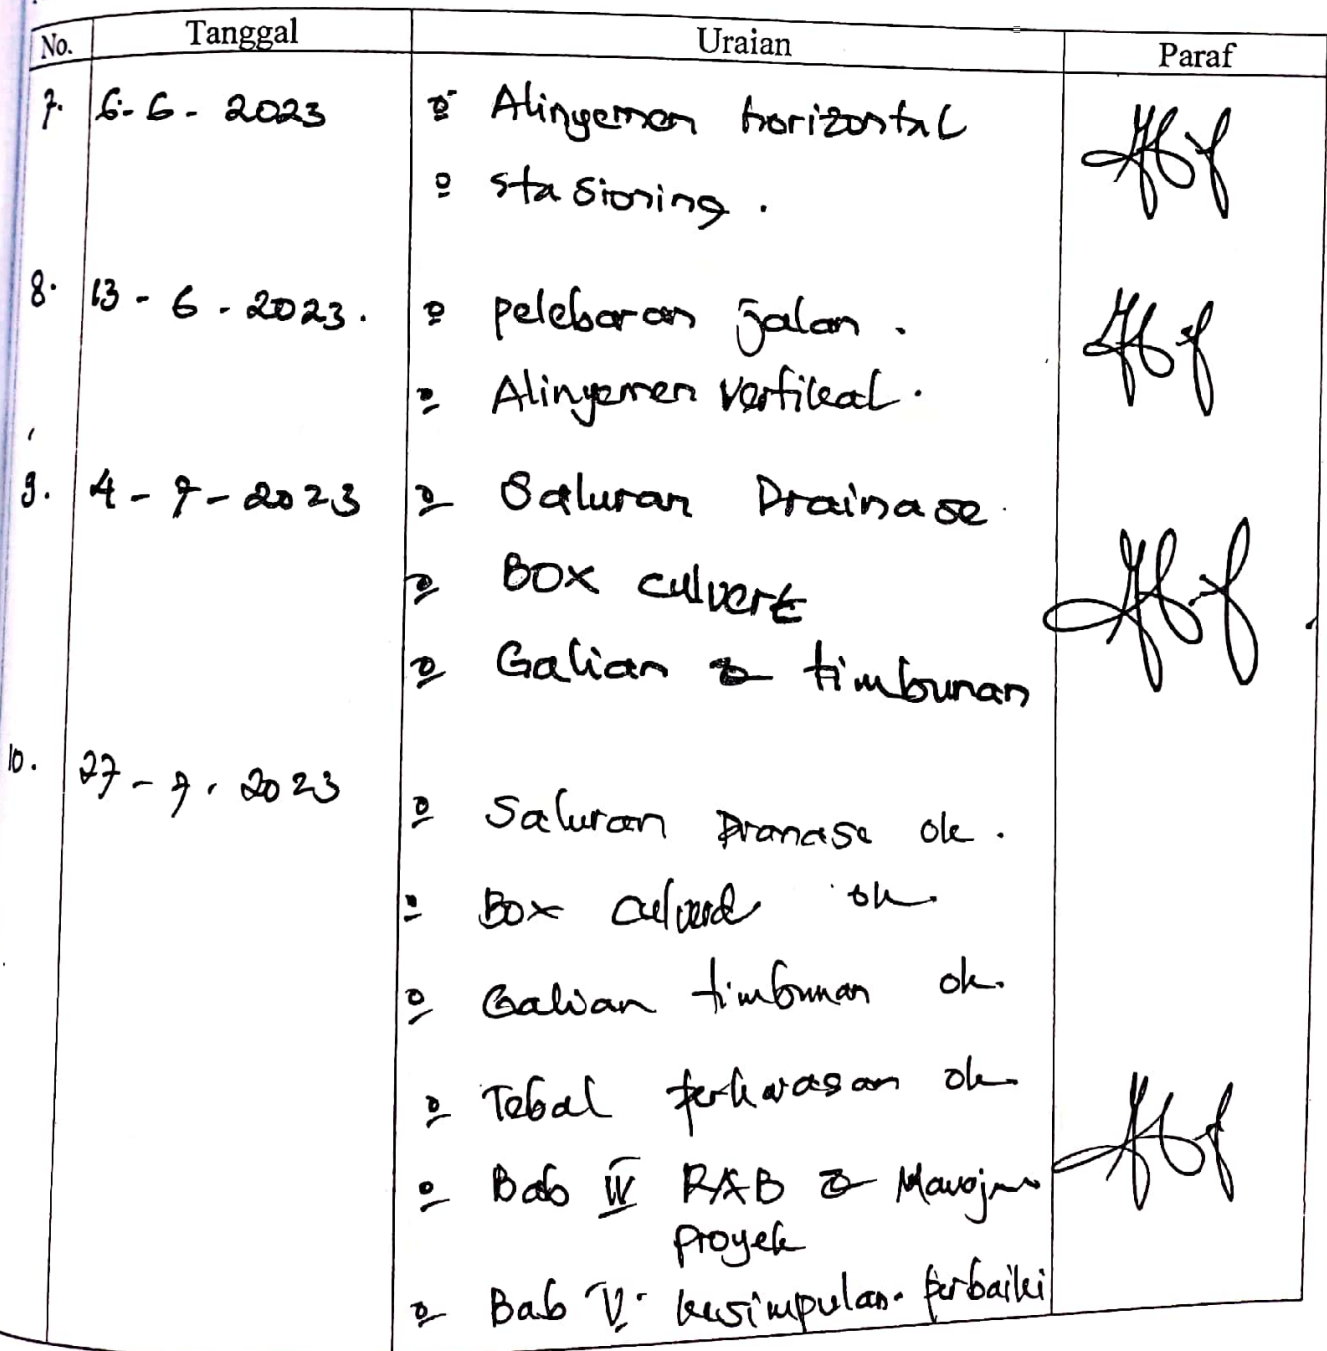 No. Tanggal Uraian Paraf
7. 6-6-2023 Alinyemen horizontal
stasioning.
8. 13-6-2023. pelebaran jalan.
Alinyemen Vertikal.
9. 4-7-2023 Saluran Drainase
Box culvert
Galian & timbunan
10. 27-7-2023
Saluran Dranase ok.
Box culverd ok.
Galian timbunan ok.
Tebal perkerasan ok
Bab IV RAB & Manajmn
proyek
Bab V. kesimpulan perbaiki